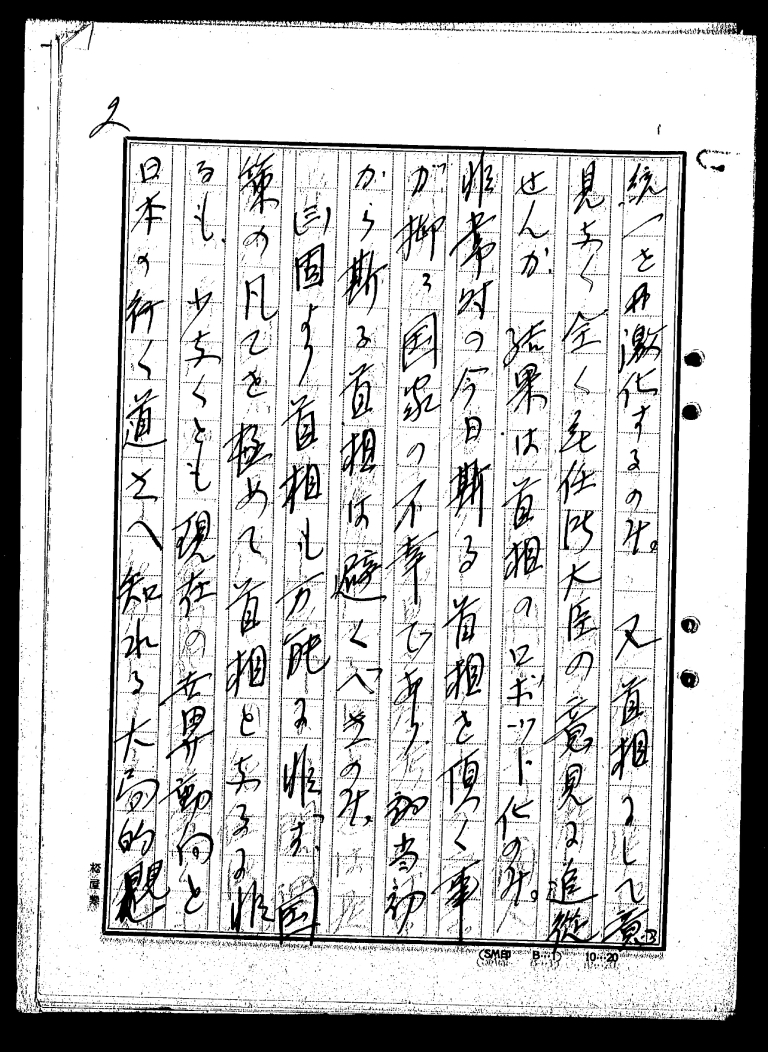 統一を弱激化するのみ。 又首相にして意
見なく全く無任所大臣の意見に追従
せんか、結果は首相のロボット化のみ。
非常時の今日斯る首相を頂く事
が抑々国家の不幸であり、当初
から斯る首相は避くべきのみ。
(三)固より首相も万能に非ず、国
策の凡てを極めて首相となるに非
るも、少なくとも現在の世界動向と
日本の行く道さへ知れる大局的観
2
(SMB) B…1 10…20